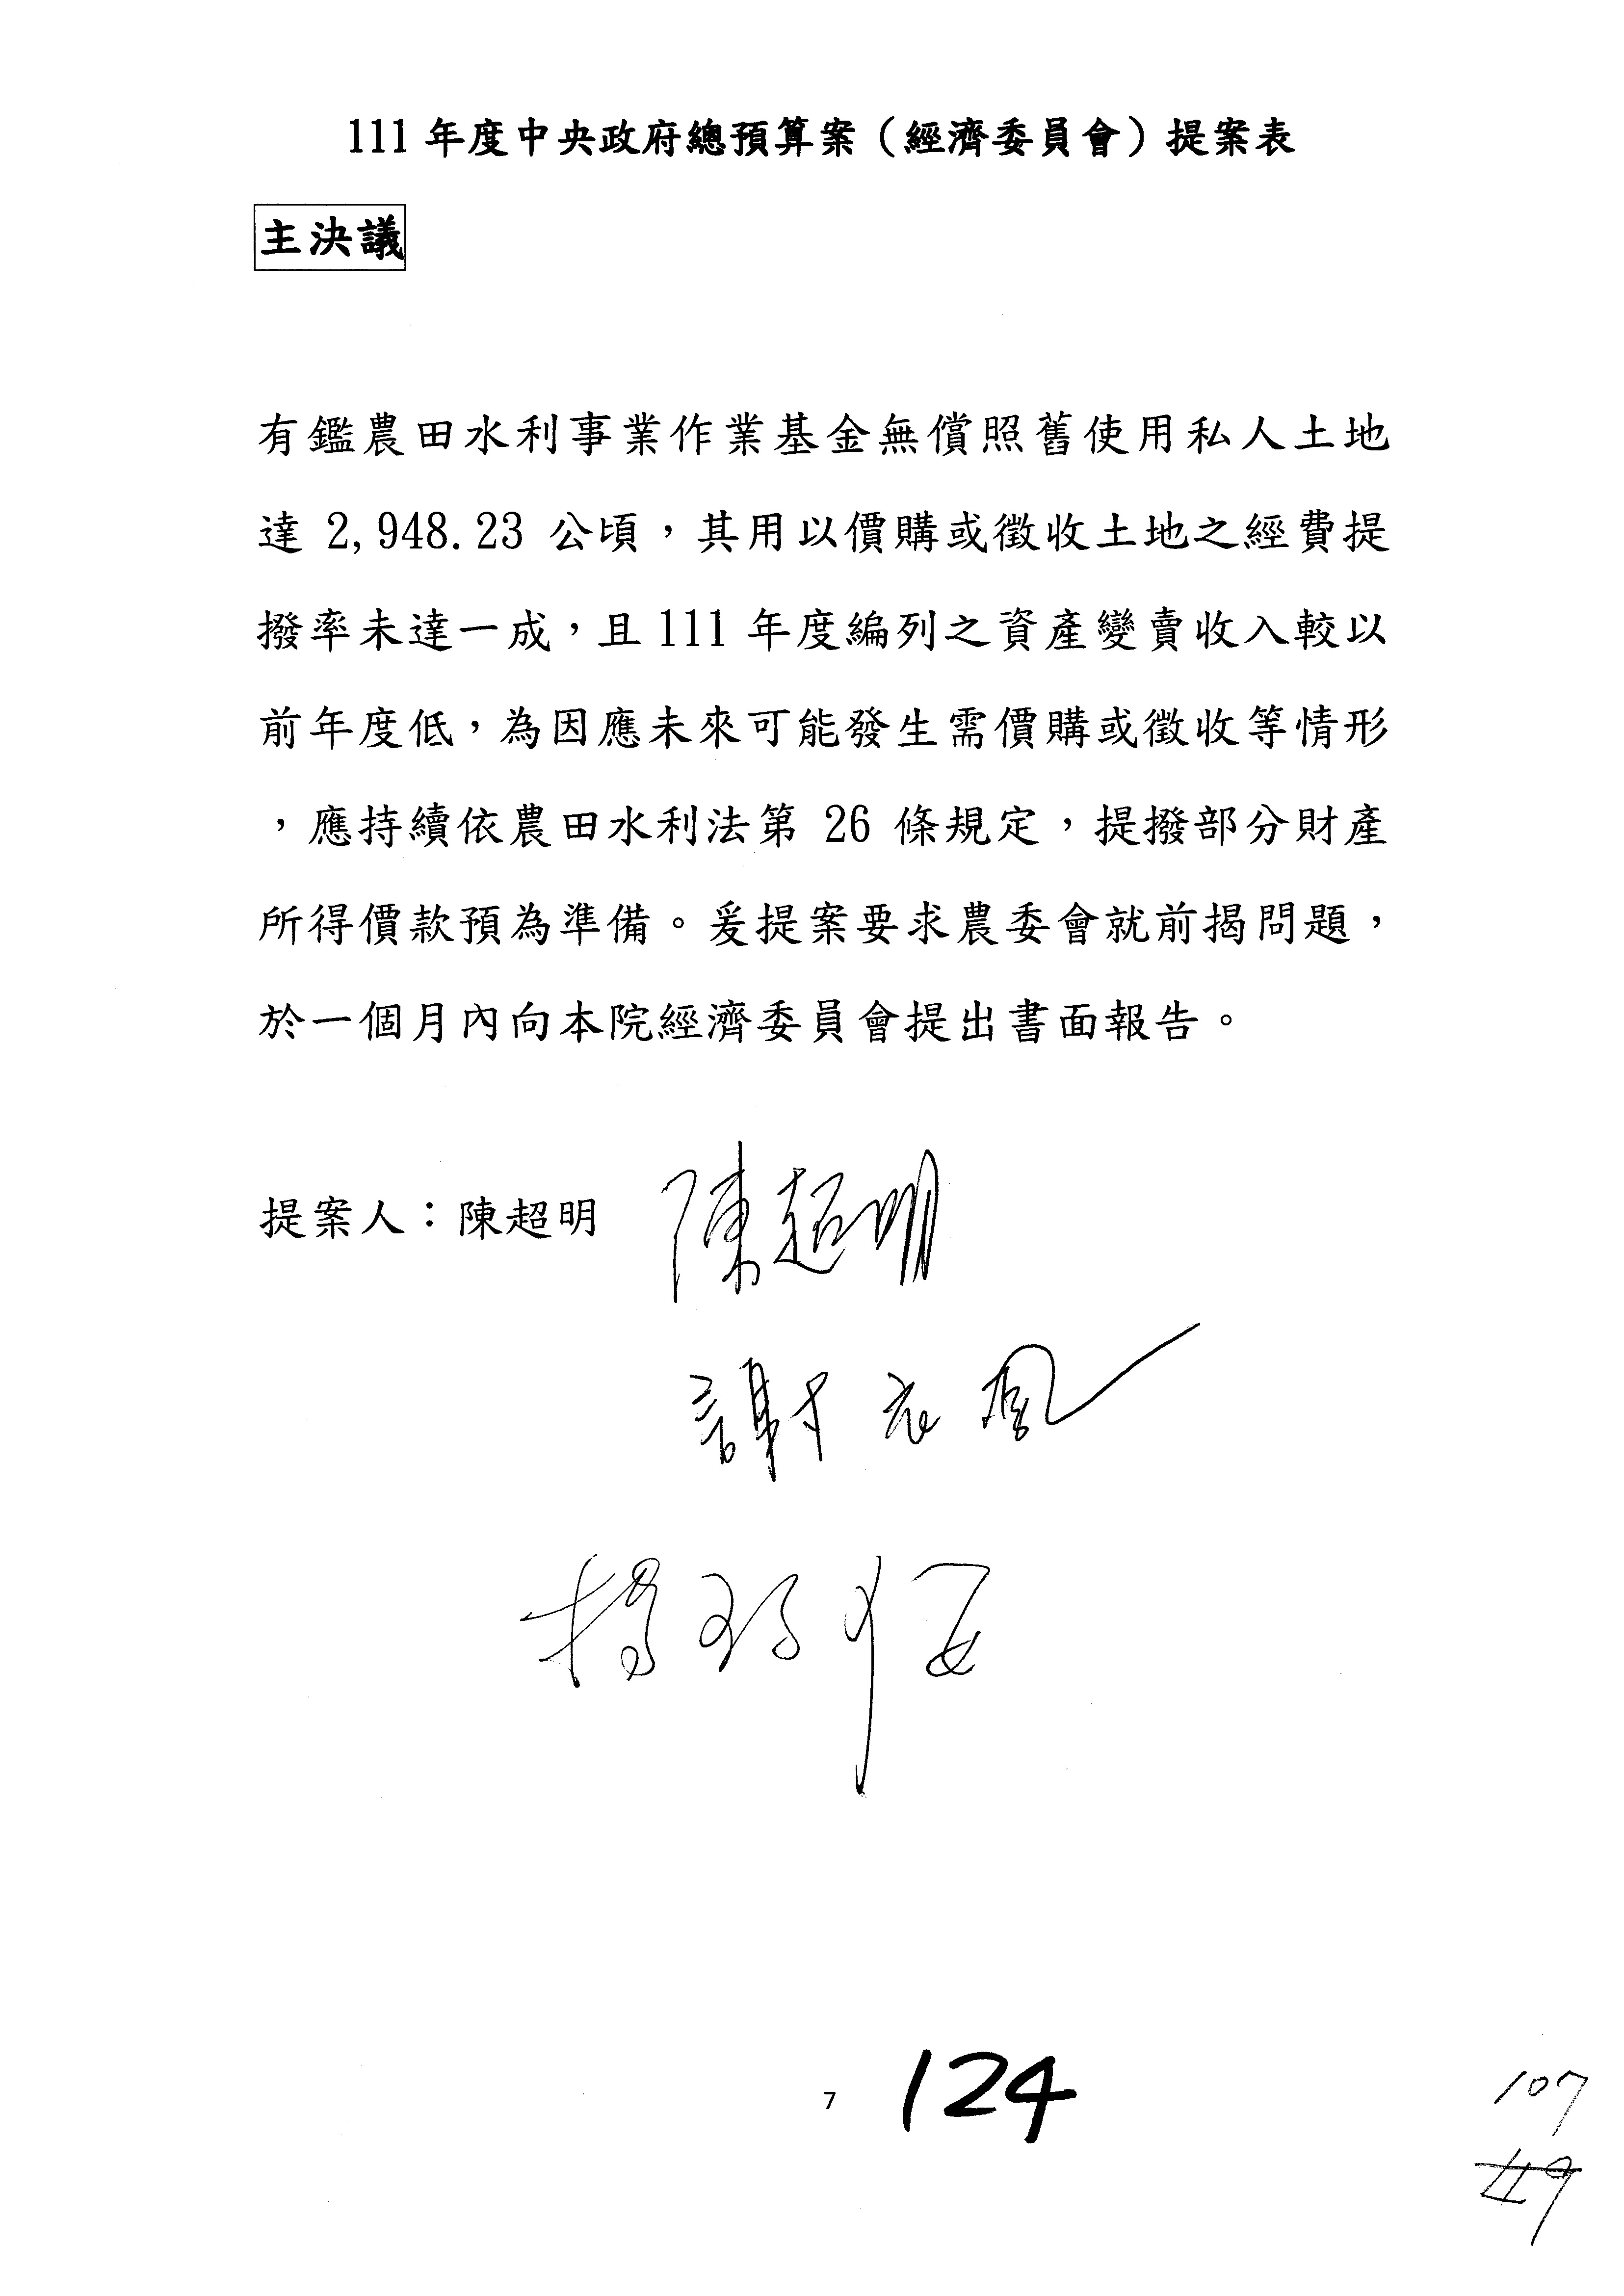 111 年度中央政府總預算案（經濟委員會）提案表
主決議
有鑑農田水利事業作業基金無償照舊使用私人土地
達 2,948.23 公頃，其用以價購或徵收土地之經費提
撥率未達一成，且 111 年度編列之資產變賣收入較以
前年度低，為因應未來可能發生需價購或徵收等情形
，應持續依農田水利法第 26 條規定，提撥部分財產
所得價款預為準備。爰提案要求農委會就前揭問題，
於一個月內向本院經濟委員會提出書面報告。
提案人：陳超明 陳超明
謝衣鳳
楊瓊瓔
7 124
107